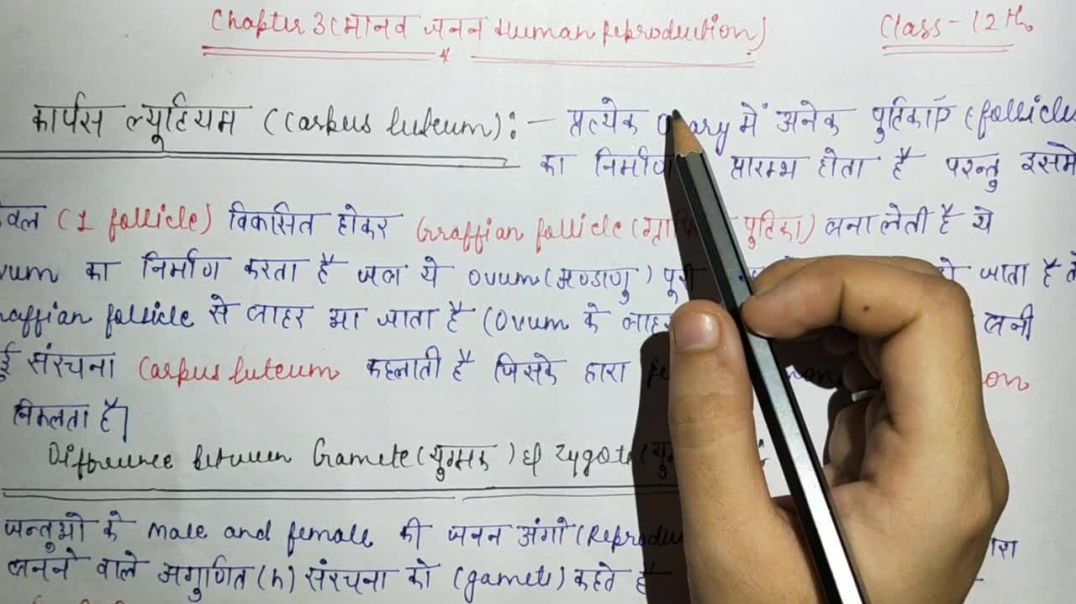 Chapter 3 (मानव जनन Human Reproduction) Class - 12th
कार्पस ल्यूटियम (Carpus luteum) : - प्रत्येक में अनेक पुटिकाएँ (follicles
का निर्माण प्रारम्भ होता है परन्तु इसमे
(1 follicle) विकसित होकर Graffian follicle ( पुटिका) बना लेती है ये
का निर्माण करता है जब ये Ovum (अण्डाणु) जाता है
follicle से बाहर आ जाता है (Ovum के बनी
संरचना Carpus luteum कहलाती है जिसके द्वारा
निकलता है|
Difference between Gamete (युग्मक) & Zygote
जन्तुओ के male and female की जनन अंगो
बनने वाले अगुणित (n) संरचना को (gamete) कहते है